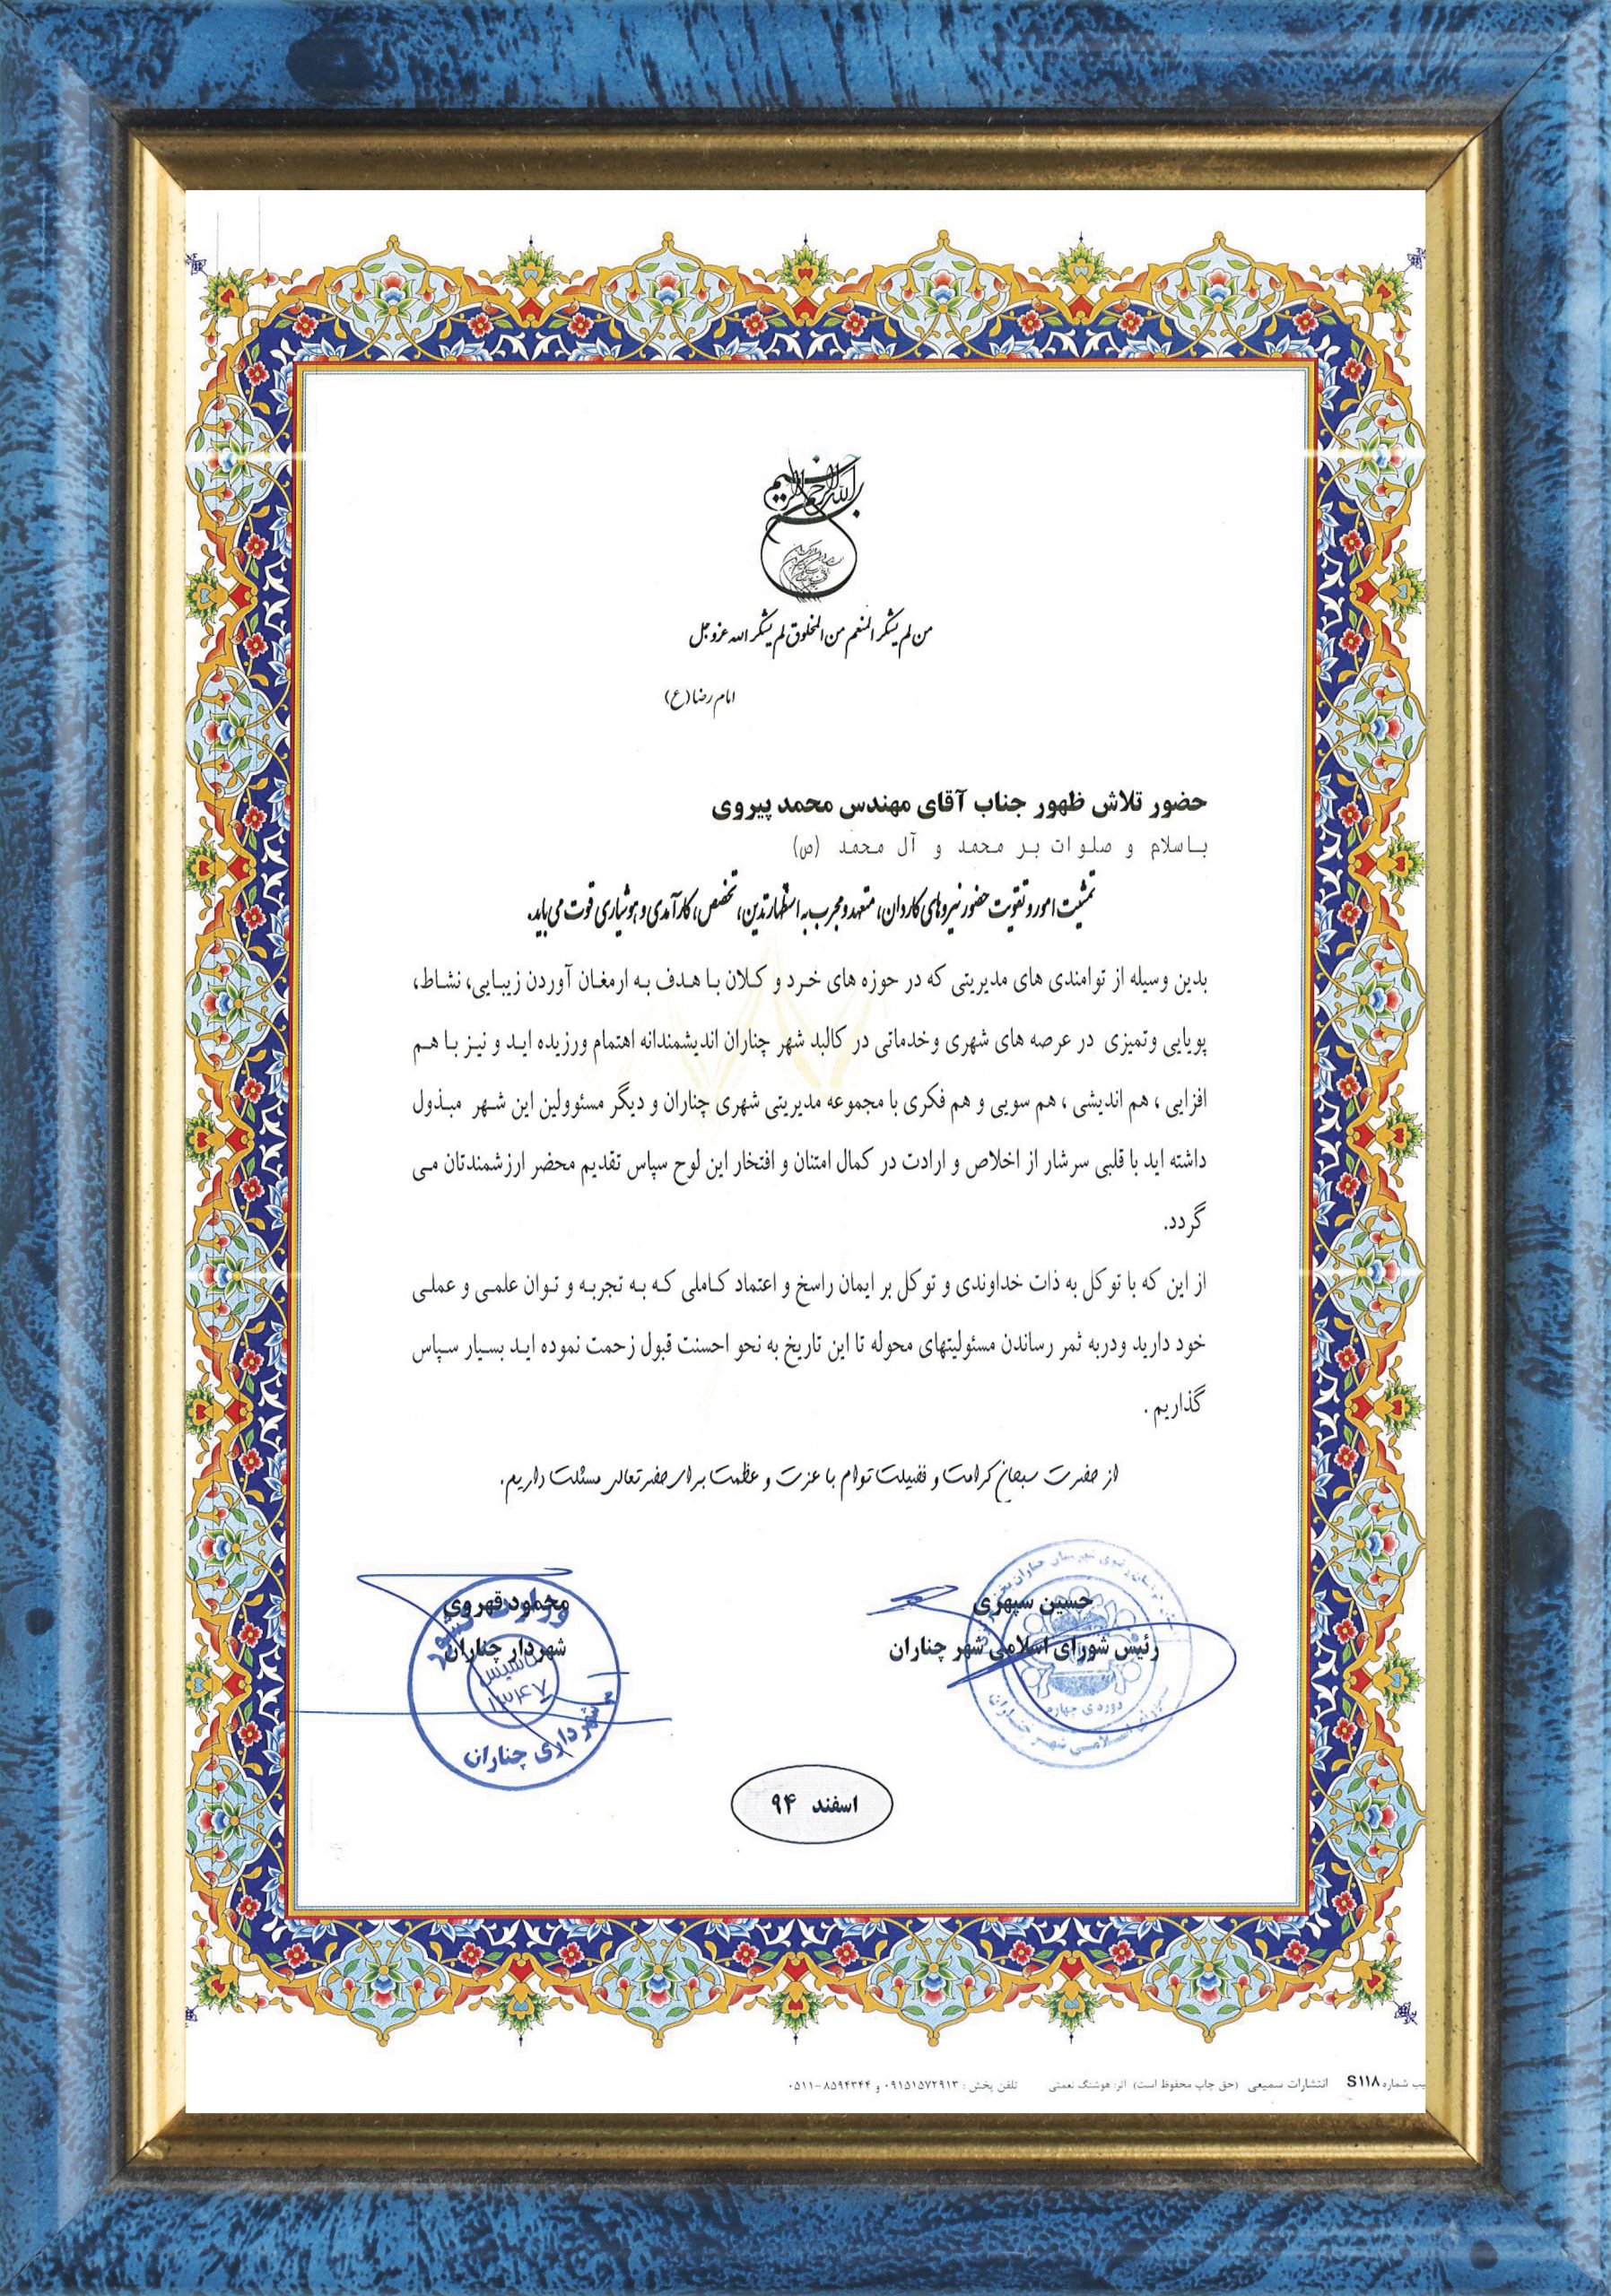 بسم الله الرحمن الرحیم
من لم یشکر المنعم من المخلوق لم یشکر الله عزوجل
امام رضا (ع)
حضور تلاش ظهور جناب آقای مهندس محمد پیروی
باسلام و صلوات بر محمد و آل محمد (ص)
تمشیت امور و تقویت حضور نیروهای کاروان، متعهد و مجرب به استظهار تدین، تخصص، کارآمدی و هوشیاری قوت می یابد.
بدین وسیله از توامندی های مدیریتی که در حوزه های خرد و کلان با هدف به ارمغان آوردن زیبایی، نشاط،
پویایی وتمیزی در عرصه های شهری وخدماتی در کالبد شهر چناران اندیشمندانه اهتمام ورزیده اید و نیز با هم
افزایی ، هم اندیشی ، هم سویی و هم فکری با مجموعه مدیریتی شهری چناران و دیگر مسئوولین این شهر مبذول
داشته اید با قلبی سرشار از اخلاص و ارادت در کمال امتنان و افتخار این لوح سپاس تقدیم محضر ارزشمندتان می
گردد.
از این که با توکل به ذات خداوندی و توکل بر ایمان راسخ و اعتماد کاملی که به تجربه و توان علمی و عملی
خود دارید ودربه ثمر رساندن مسئولیتهای محوله تا این تاریخ به نحو احسنت قبول زحمت نموده اید بسیار سپاس
گذاریم .
از حضرت سبحان کرامت و فضیلت توام با عزت و عظمت برای حضرتعالی مسئلت داریم.
حسین سپهری
رئیس شورای اسلامی شهر چناران
دوره ی چهارم
شورای اسلامی شهر چناران
محمود قهروی
شهردار چناران
وزارت کشور
تاسیس
۱۳۴۷
شهرداری چناران
اسفند ۹۴
شماره S۱۱۸ انتشارات سمیعی (حق چاپ محفوظ است) اثر: هوشنگ نعمتی تلفن پخش : ۰۹۱۵۱۵۷۲۹۱۳ و ۸۵۹۴۳۴۴-۰۵۱۱